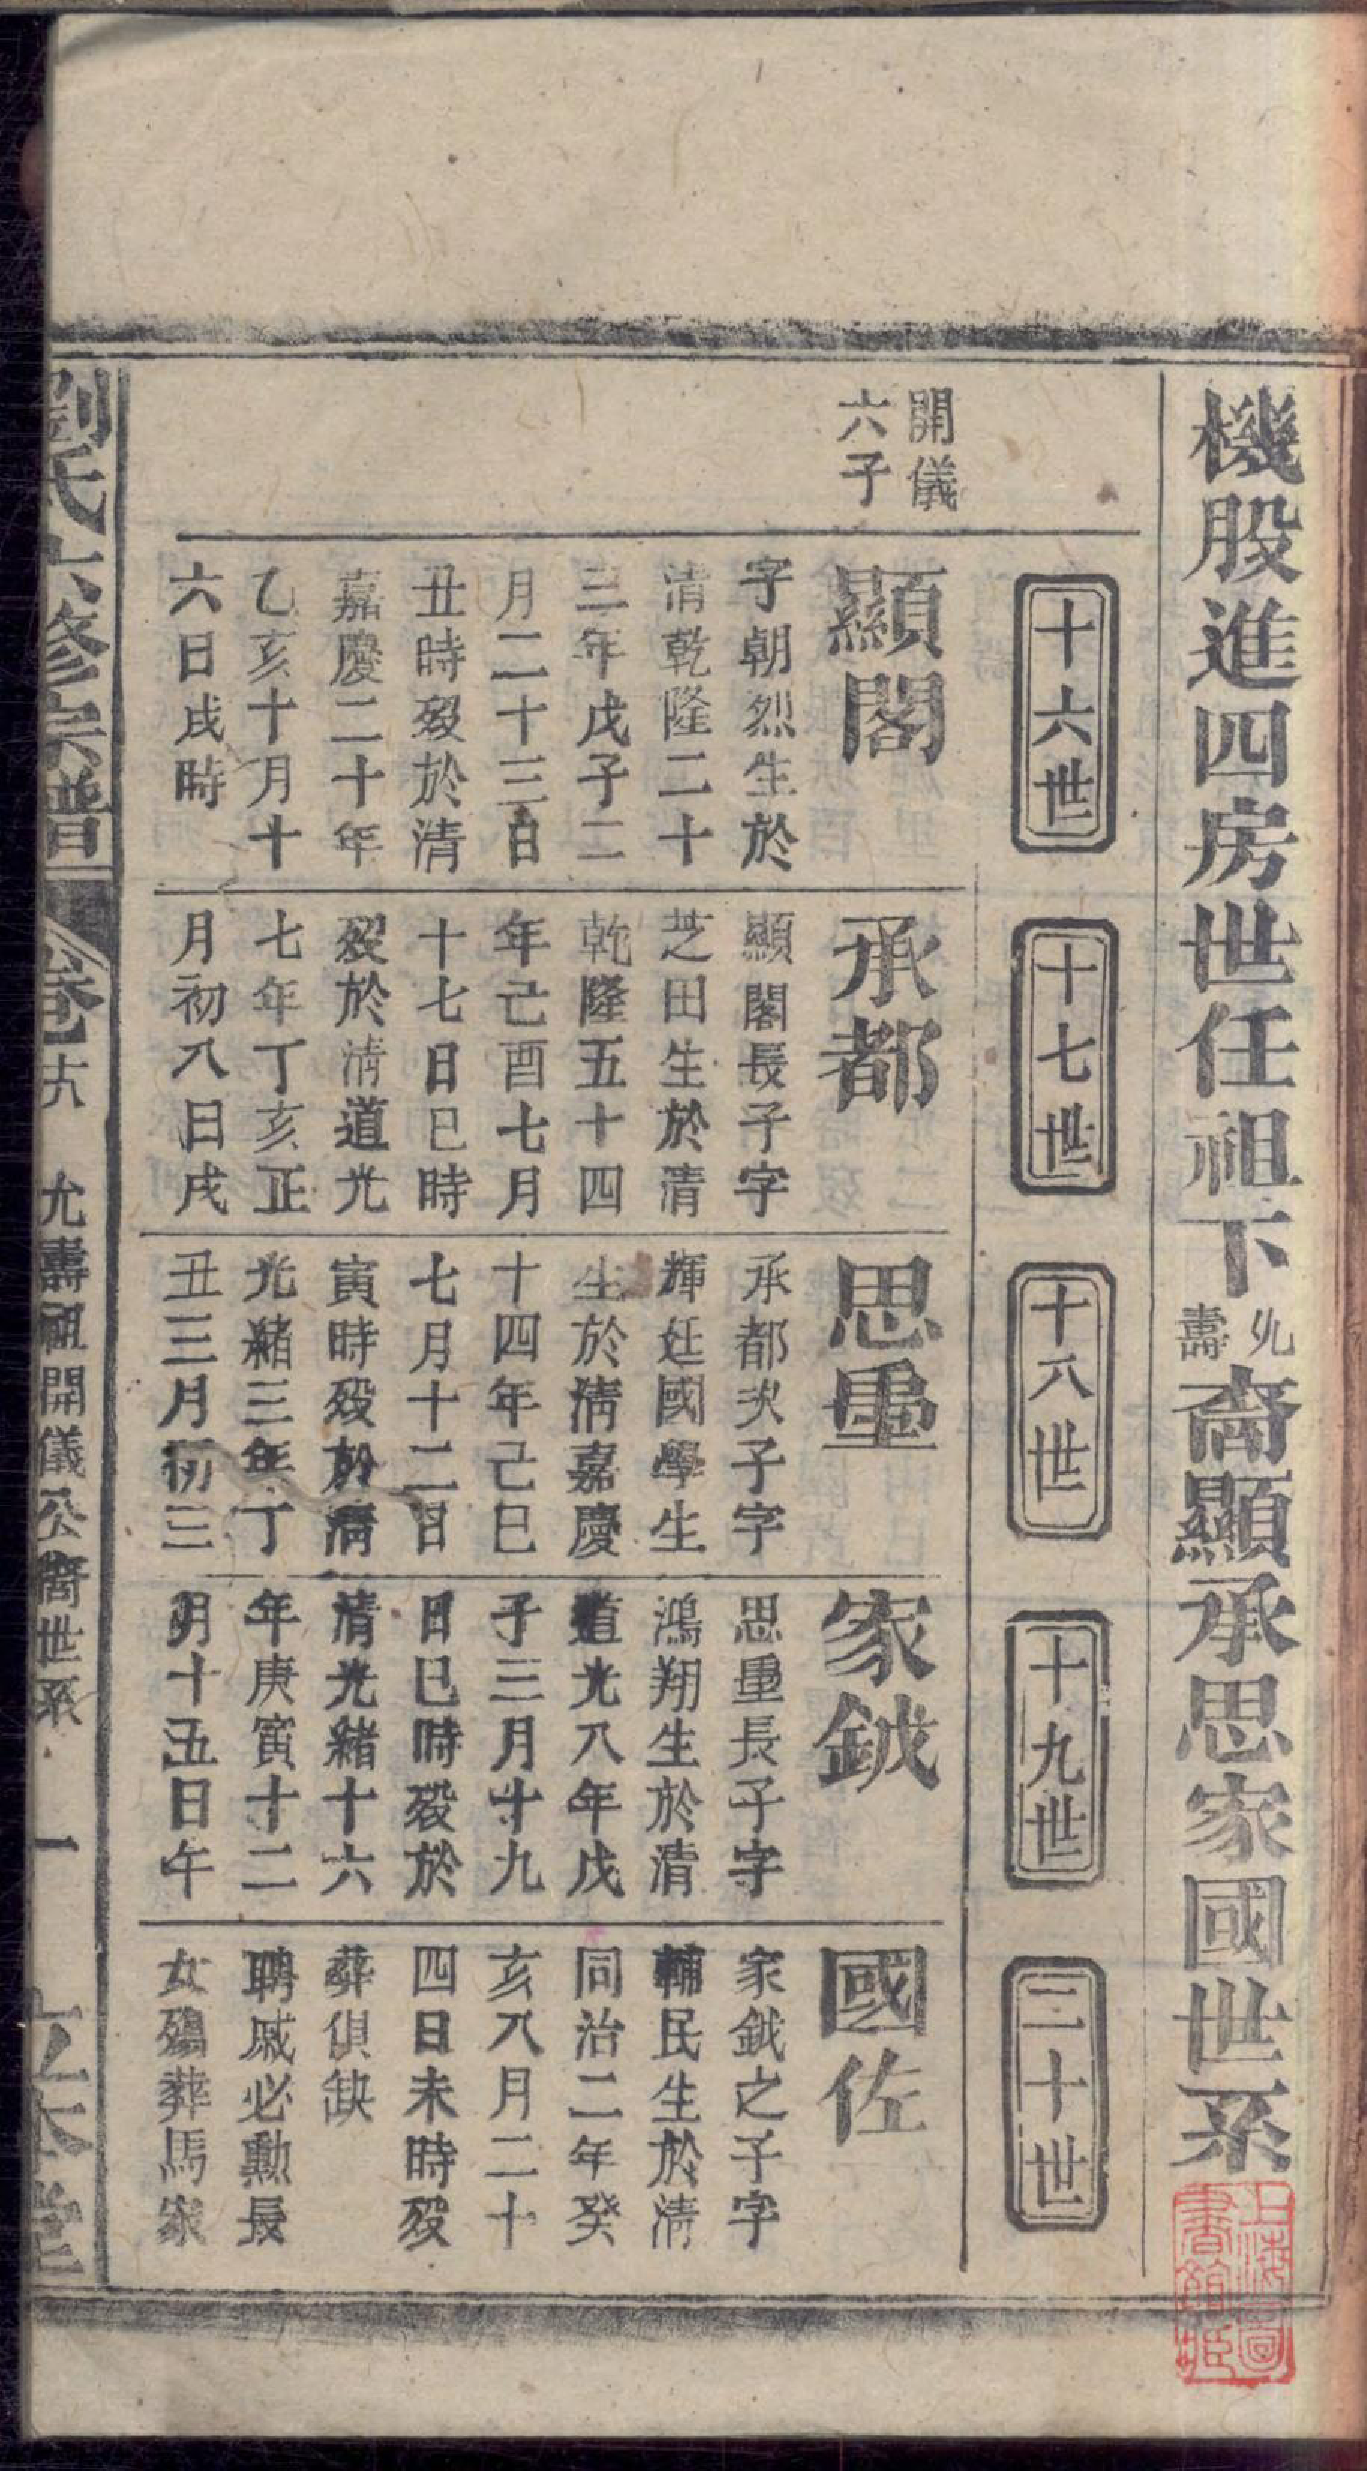 機股進四房世任祖下允壽裔顯承思家國世系
十六世
十七世
十八世
十九世
二十世
開儀
六子
顯閣
字朝烈生於
清乾隆二十
三年戊子二
月二十三日
丑時歿於清
嘉慶二十年
乙亥十月十
六日戌時
承都
顯閣長子字
芝田生於清
乾隆五十四
年己酉七月
十七日巳時
歿於清道光
七年丁亥正
月初八日戌
思重
承都次子字
輝廷國學生
生於清嘉慶
十四年己巳
七月十二日
寅時歿於清
光緒三年丁
丑三月初三
家鉞
思重長子字
鴻翔生於清
道光八年戊
子三月十九
日巳時歿於
清光緒十六
年庚寅十二
月十五日午
國佐
家鉞之子字
輔民生於清
同治二年癸
亥八月二十
四日未時歿
葬俱缺
聘戚必勲長
女殤葬馬家
劉氏六修宗譜
卷十六
允壽祖開儀公裔世系
一
立本堂
上海圖
書館藏